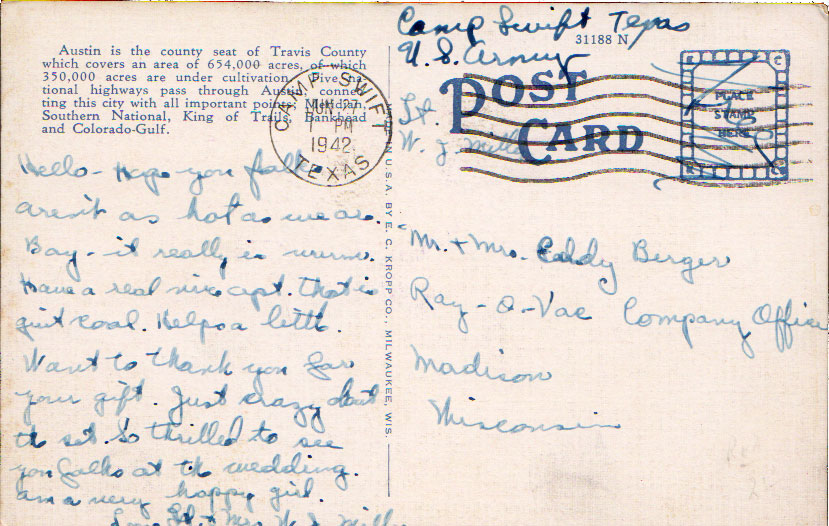 Austin is the county seat of Travis County
which covers an area of 654,000 acres, of which
350,000 acres are under cultivation. Five na-
tional highways pass through Austin, connec-
ting this city with all important points: Meridian,
Southern National, King of Trails, Bankhead
and Colorado-Gulf.
Hello - Hope you folks
aren't as hot as we are.
Boy - it really is warm.
Have a real nice apt. that is
quit cool. Helps a little.
Want to thank you for
your gift. Just crazy about
the set. So thrilled to see
you folks at the wedding.
am a very happy girl.
Love Lt. + Mrs. W. J. Mills
MADE IN U.S.A. BY E. C. KROPP CO., MILWAUKEE, WIS.
CAMP SWIFT
JUN 27
1 PM
1942
TEXAS
Camp Swift Texas
U.S. Army
31188 N
Lt.
W. J. Mills
POST
CARD
PLACE
STAMP
HERE
Mr. + Mrs. Eddy Berger
Ray-O-Vac Company Office
Madison
Wisconsin